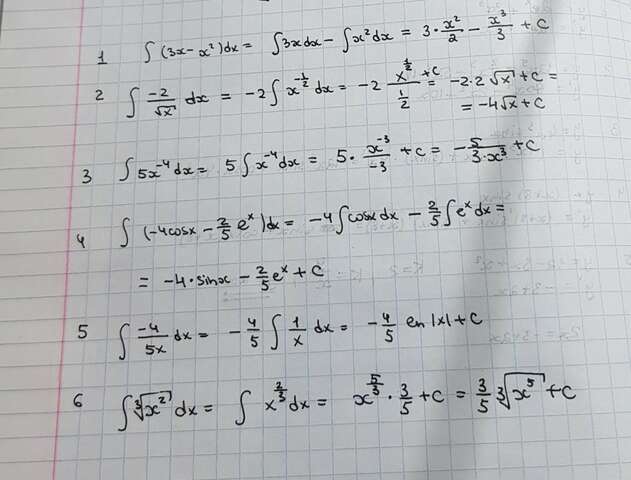 1 ∫(3x-x²)dx = ∫3xdx - ∫x²dx = 3·x²/2 - x³/3 + C
2 ∫ -2/√x dx = -2∫x^(-1/2) dx = -2 x^(1/2)/(1/2) + C = -2·2√x + C =
= -4√x + C
3 ∫5x⁻⁴dx = 5∫x⁻⁴dx = 5· x⁻³/-3 + C = - 5/(3·x³) + C
4 ∫(-4cosx - 2/5 eˣ)dx = -4∫cosxdx - 2/5∫eˣdx =
= -4·sinx - 2/5eˣ + C
5 ∫ -4/5x dx = -4/5 ∫ 1/x dx = -4/5 ln|x| + C
6 ∫∛x² dx = ∫ x^(2/3) dx = x^(5/3) · 3/5 + C = 3/5 ∛x⁵ + C